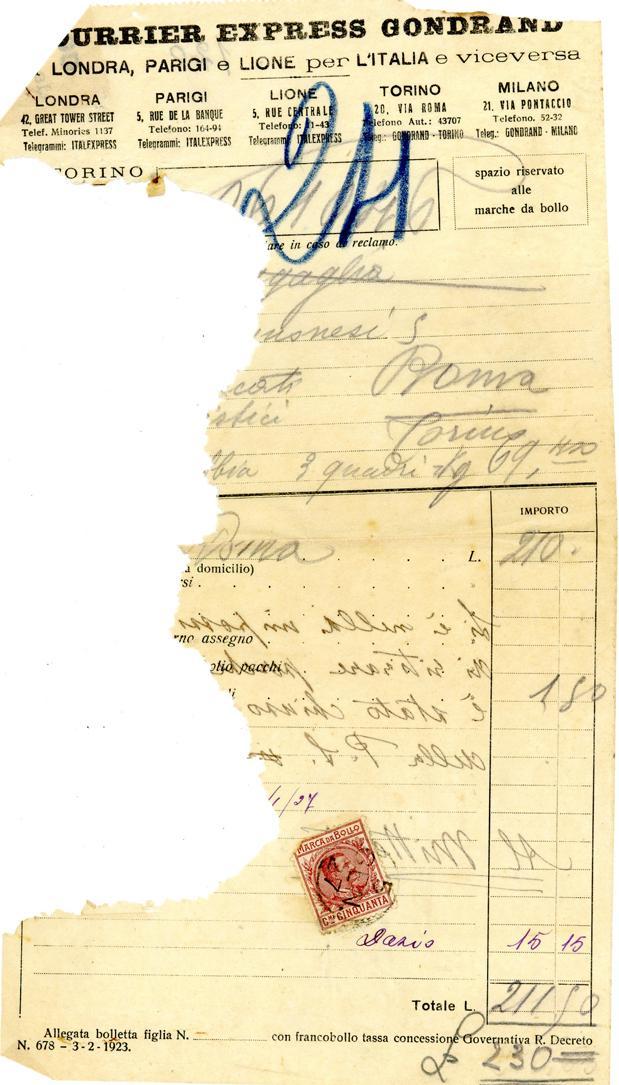 COURRIER EXPRESS GONDRAND
LONDRA, PARIGI e LIONE per L'ITALIA e viceversa
LONDRA
42, GREAT TOWER STREET
Telef. Minories 1137
Telegrammi: ITALEXPRESS
PARIGI
5, RUE DE LA BANQUE
Telefono: 164-94
Telegrammi: ITALEXPRESS
LIONE
5, RUE CENTRALE
Telefono: 31-43
Telegrammi: ITALEXPRESS
TORINO
20, VIA ROMA
Telefono Aut.: 43707
Teleg.: GONDRAND - TORINO
MILANO
21, VIA PONTACCIO
Telefono. 52-32
Teleg.: GONDRAND - MILANO
TORINO
spazio riservato
alle
marche da bollo
211
are in caso di reclamo.
Roma
Torino
3 quadri Kg 69,400
IMPORTO
Roma L. 210.
a domicilio)
rsi
è nella
rno assegno
oglio pacchi
ritirare
1 50
è stato chiuso
dalla P. S.
/1/27
Il Mitt
MARCA DA BOLLO
CMI CINQUANTA
Dazio 15 15
Totale L. 211 50
Allegata bolletta figlia N. con francobollo tassa concessione Governativa R. Decreto
N. 678 - 3-2-1923.
£ 230=